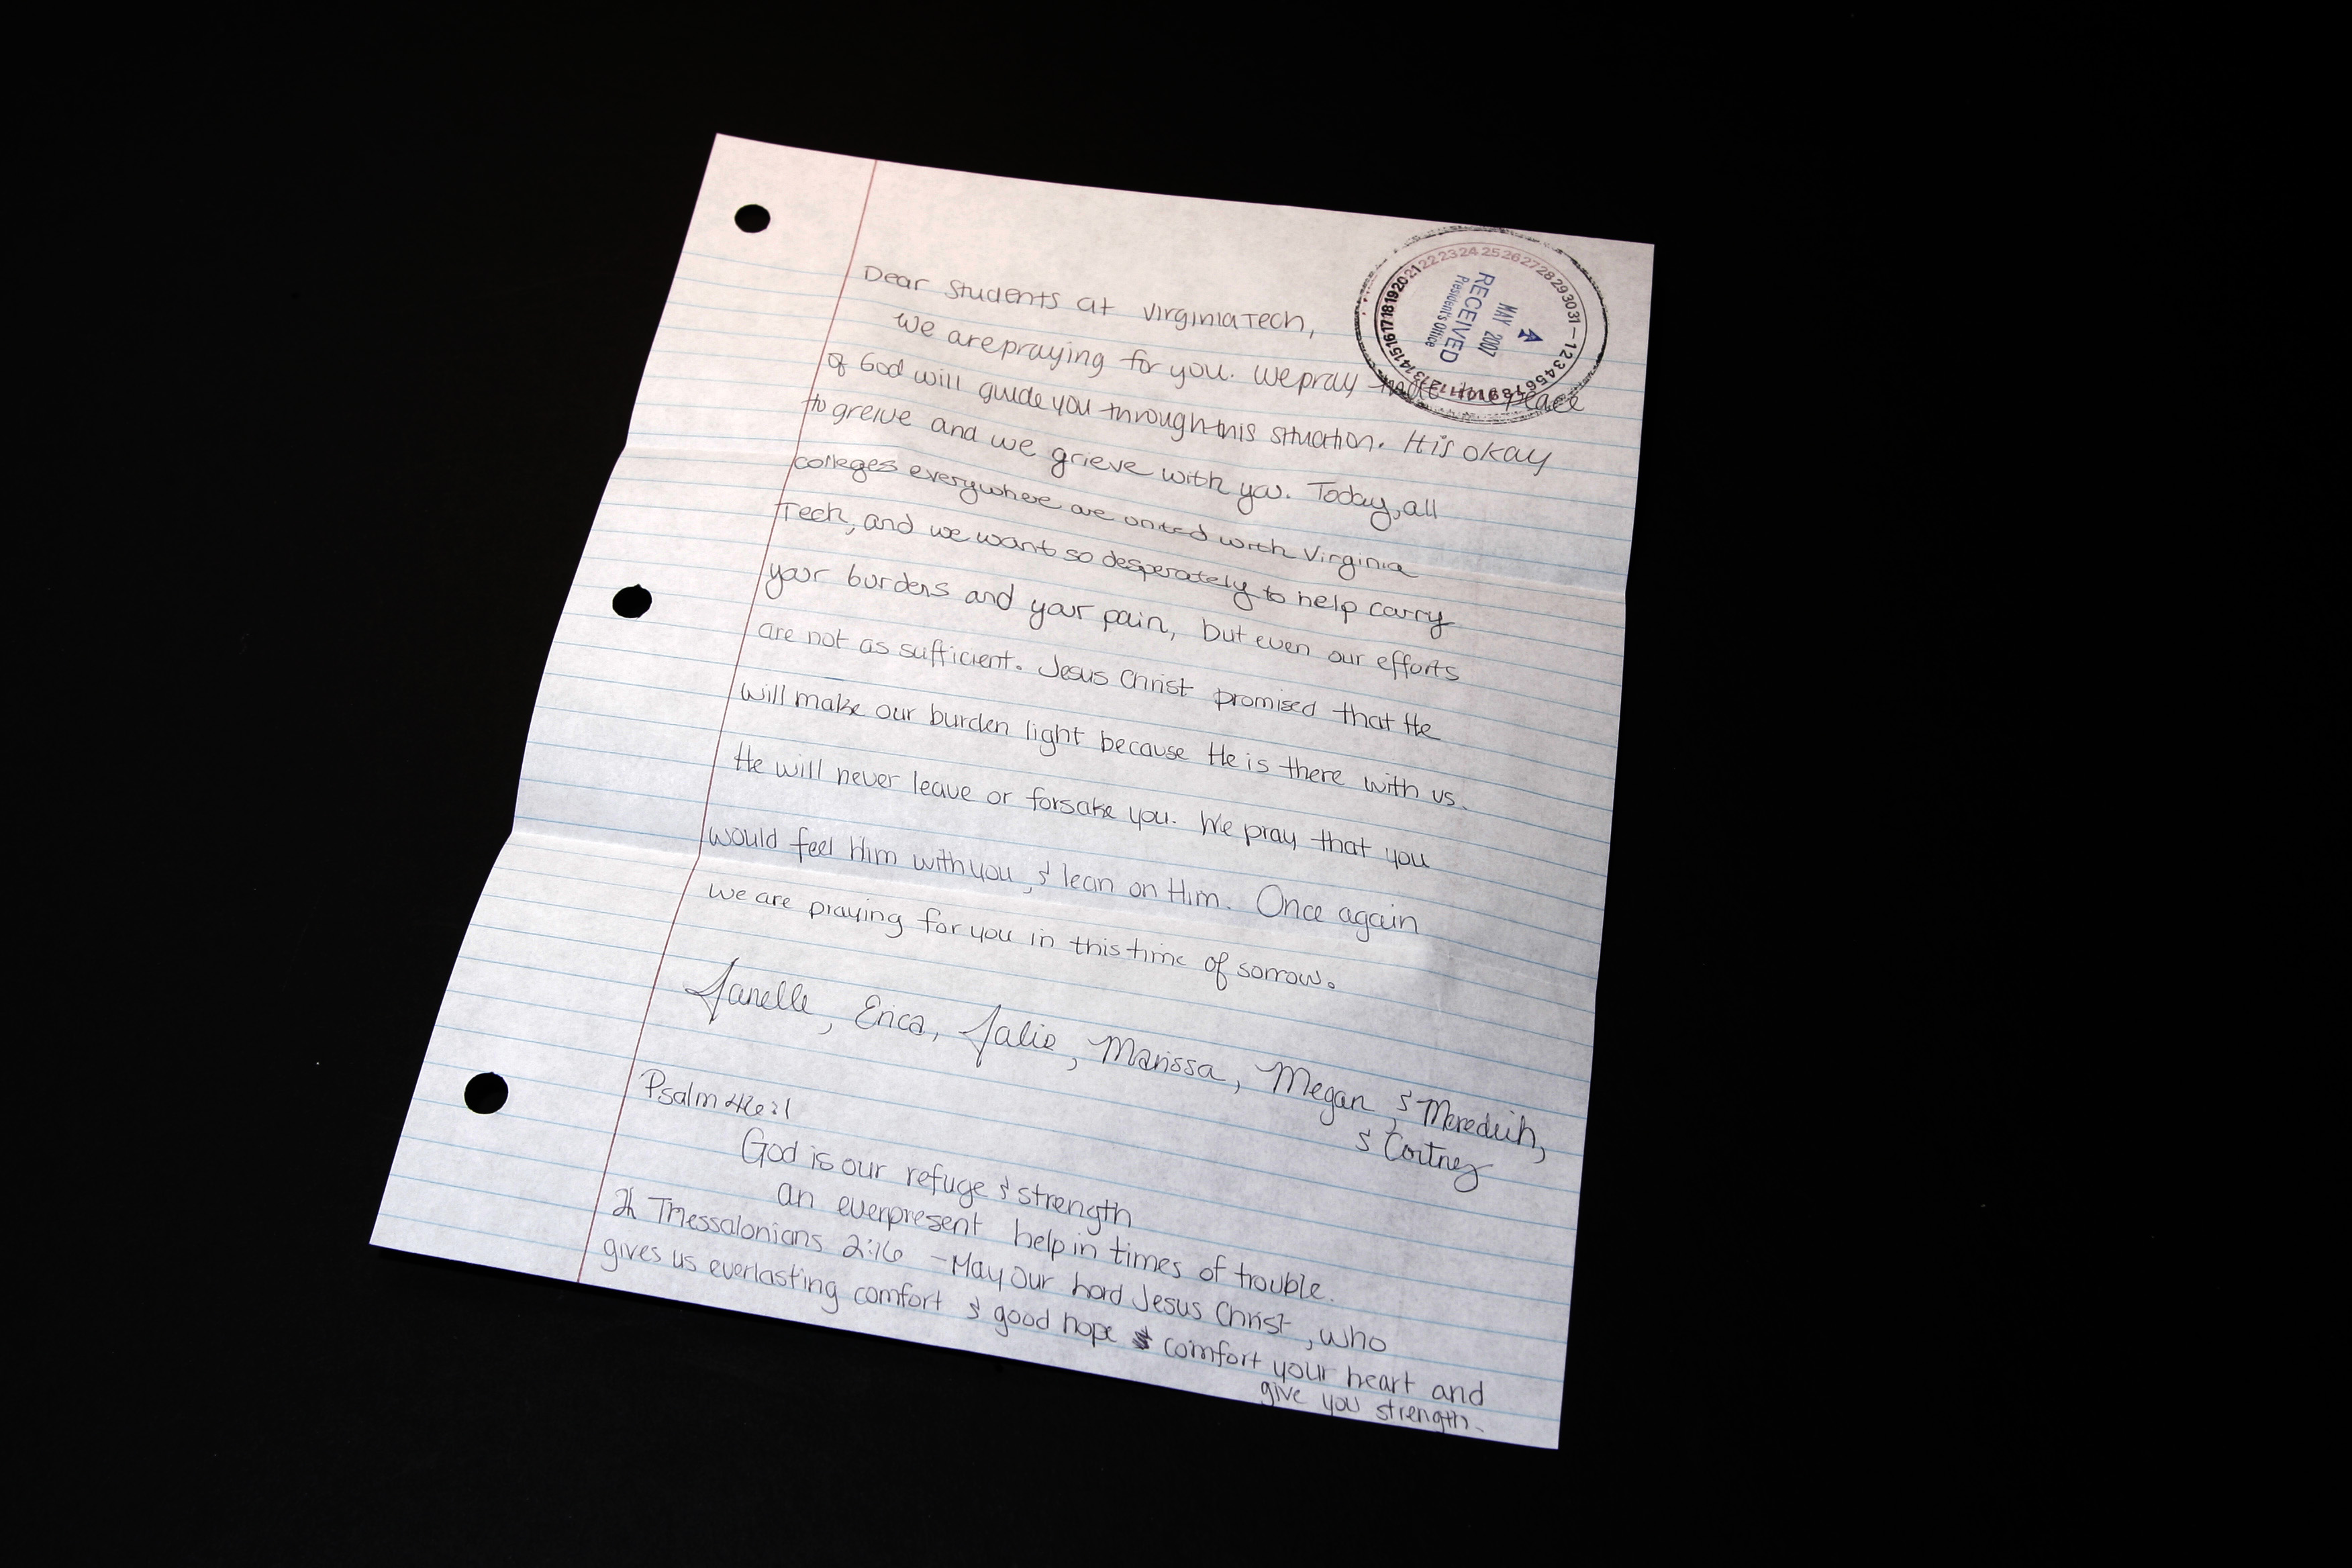 Dear students at Virginia Tech,
We are praying for you. We pray that the peace
of God will guide you through this situation. It is okay
to greive and we grieve with you. Today, all
colleges everywhere are united with Virginia
Tech, and we want so desperately to help carry
your burdens and your pain, but even our efforts
are not as sufficient. Jesus Christ promised that He
will make our burden light because He is there with us.
He will never leave or forsake you. We pray that you
would feel Him with you, & lean on Him. Once again
we are praying for you in this time of sorrow.
Janelle, Erica, Jalie, Marissa, Megan, & Meredith,
& Cortney
Psalm 46:1
God is our refuge & strength
an everpresent help in times of trouble.
2 Thessalonians 2:16 - May Our Lord Jesus Christ, who
gives us everlasting comfort & good hope comfort your heart and
give you strength.
RECEIVED
MAY 2007
President's Office
1 2 3 4 5 6 7 8 9 10 11 12 13 14 15 16 17 18 19 20 21 22 23 24 25 26 27 28 29 30 31